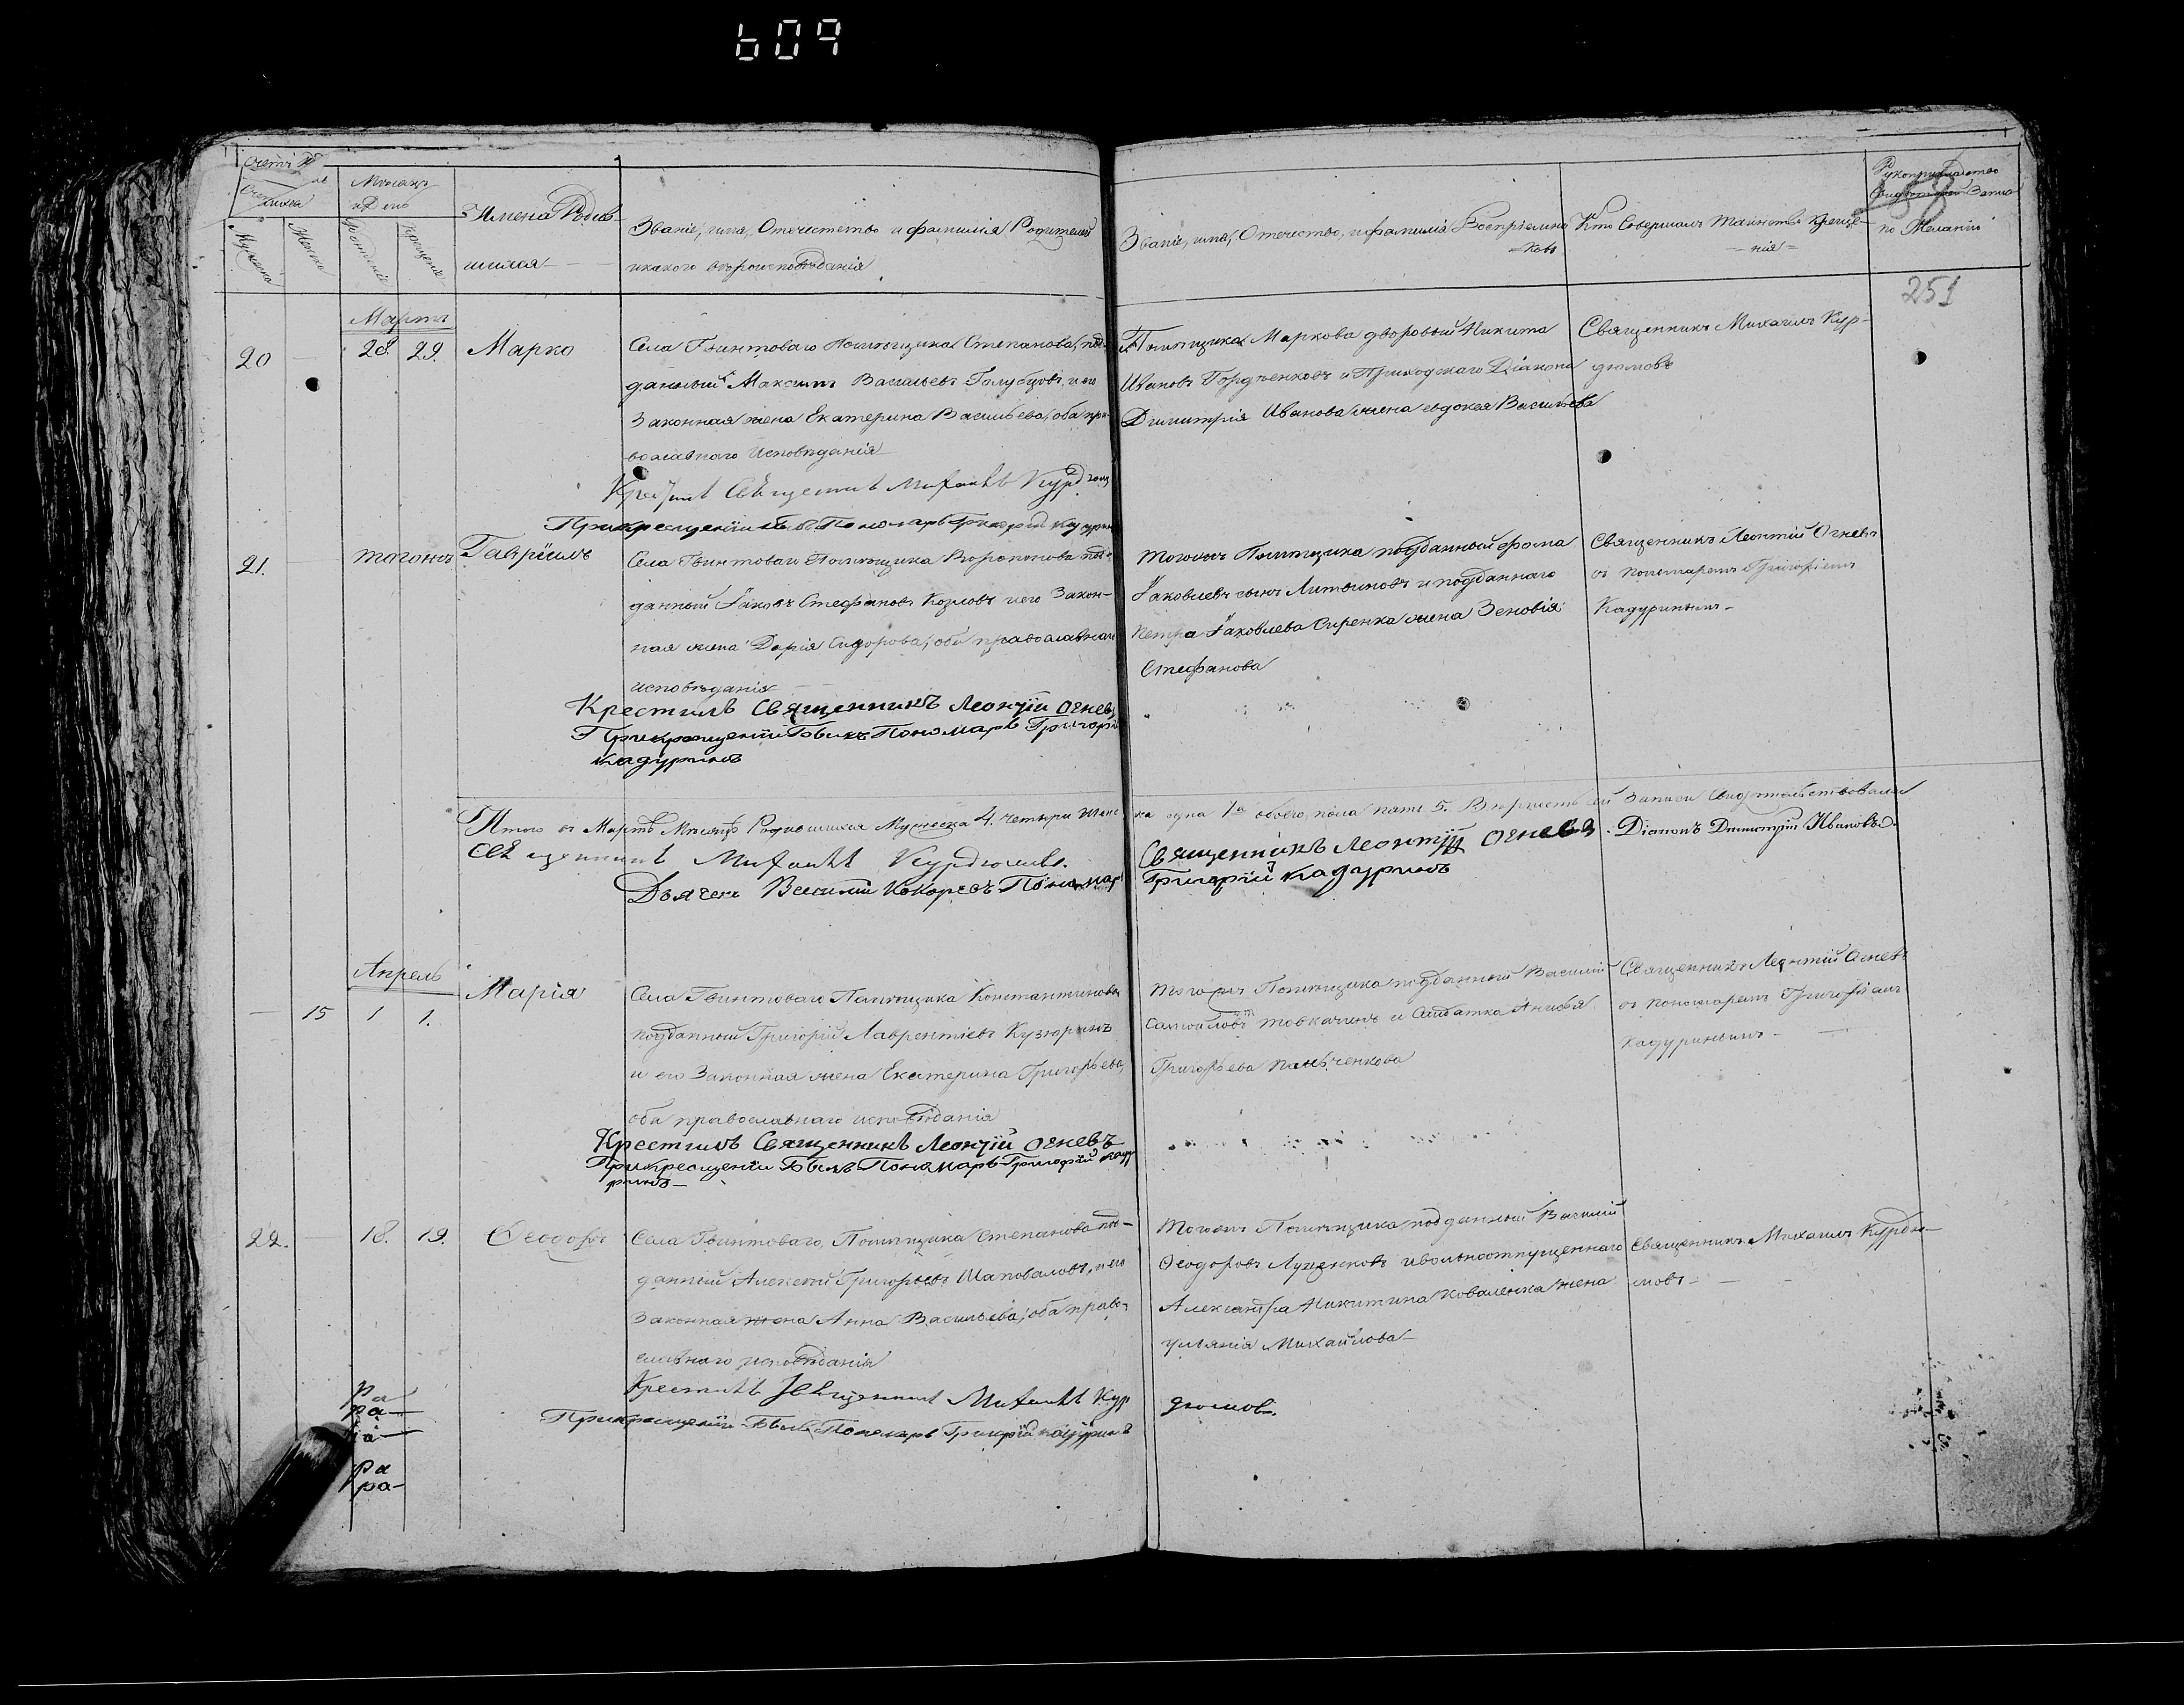 609
Счетъ
Мѣсяцъ
и День
Имена Родив-
шихся
Мужеска
Женска
Рожденія
Крещенія
Званіе, имя, Отечество и фамилія Родителей
и какого вѣроисповѣданія
Званіе, имя, Отечество, и фамилія Воспріемни-
=ковъ
Кто Совершалъ Таинство Креще-
=нія=
Рукоприкладство
по Желанію
251
Мартъ
20 — 28. 29. Марко
Села Гвинтоваго Помѣщика Степанова, под-
данный Максимъ Васильевъ Голубцовъ, и его
Законная жена Екатерина Васильева, оба пра-
вославнаго Исповѣданія
Помѣщика Маркова дворовый Никита
Ивановъ Гордѣенковъ и Приходскаго Діакона
Димитрія Иванова жена евдокея Васильева
Священникъ Михаилъ Кур-
дюмовъ
Крестилъ Священникъ Михаилъ Курдюм
При крещеніи былъ Пономарь Григорій Кадурин
21. — тогожъ Гавріилъ
Села Гвинтоваго Помѣщика Воропонова под-
данный Іаковъ Стефановъ Козловъ и его Закон-
ная жена Дарія Сидорова, оба православнаго
исповѣданія
тогожъ Помѣщика подданный фома
Іаковлевъ сынъ Литвиновъ и подданнаго
петра Іаковлева Сиренка жена Зеновія
Стефанова
Священникъ Леонтій Огневъ
съ пономаремъ Григоріемъ
Кадуринымъ-
Крестилъ Священникъ Леонтій Огневъ
При крещеніи Былъ Пономарь Григорій
Кадуринъ
Итого въ Мартѣ Мѣсяцѣ Родившихся Мужеска 4. четыри Женс
ка одна 1а обоего пола пять 5. Вѣрность сей Записи Свидѣтельствовали
Священникъ Михаилъ Курдюмовъ.
Священникъ Леонтій Огневъ. Діаконъ Димитрій Ивановъ.
Дьячекъ Василій Кокоревъ Пономарь
Григорій Кадуринъ
Апрель
— 15 1 1. Марія
Села Гвинтоваго Помѣщика Константинова
подданный Григорій Лаврентіевъ Кузюринъ
и его Законная жена Екатерина Григорьева,
оба православнаго исповѣданія
тогожъ Помѣщика подданный Василій
Самойловъ товкачинъ и Солдатка
Григорьева
Священникъ Леонтій Огневъ
съ пономаремъ Григоріемъ
Кадуринымъ-
Крестилъ Священникъ Леонтій Огневъ
При крещеніи Былъ Пономарь Григорій Каду
ринъ—
22. — 18. 19. Феодоръ
Села Гвинтоваго, Помѣщика Степанова под-
данный Алексей Григорьевъ Шаповаловъ, и его
Законная жена Анна Васильева, оба право-
славнаго исповѣданія
тогожъ Помѣщика подданный Василій
Феодоровъ Луценковъ и вольноотпущеннаго
Александра Никитина Коваленка жена
ульянія Михайлова—
Священникъ Михаилъ Курдю-
мовъ-
Крестилъ Священникъ Михаилъ Кур
дюмовъ.
При крещеніи Былъ Пономарь Григорій Кадуринъ
Ра
ра—
ра
ра-